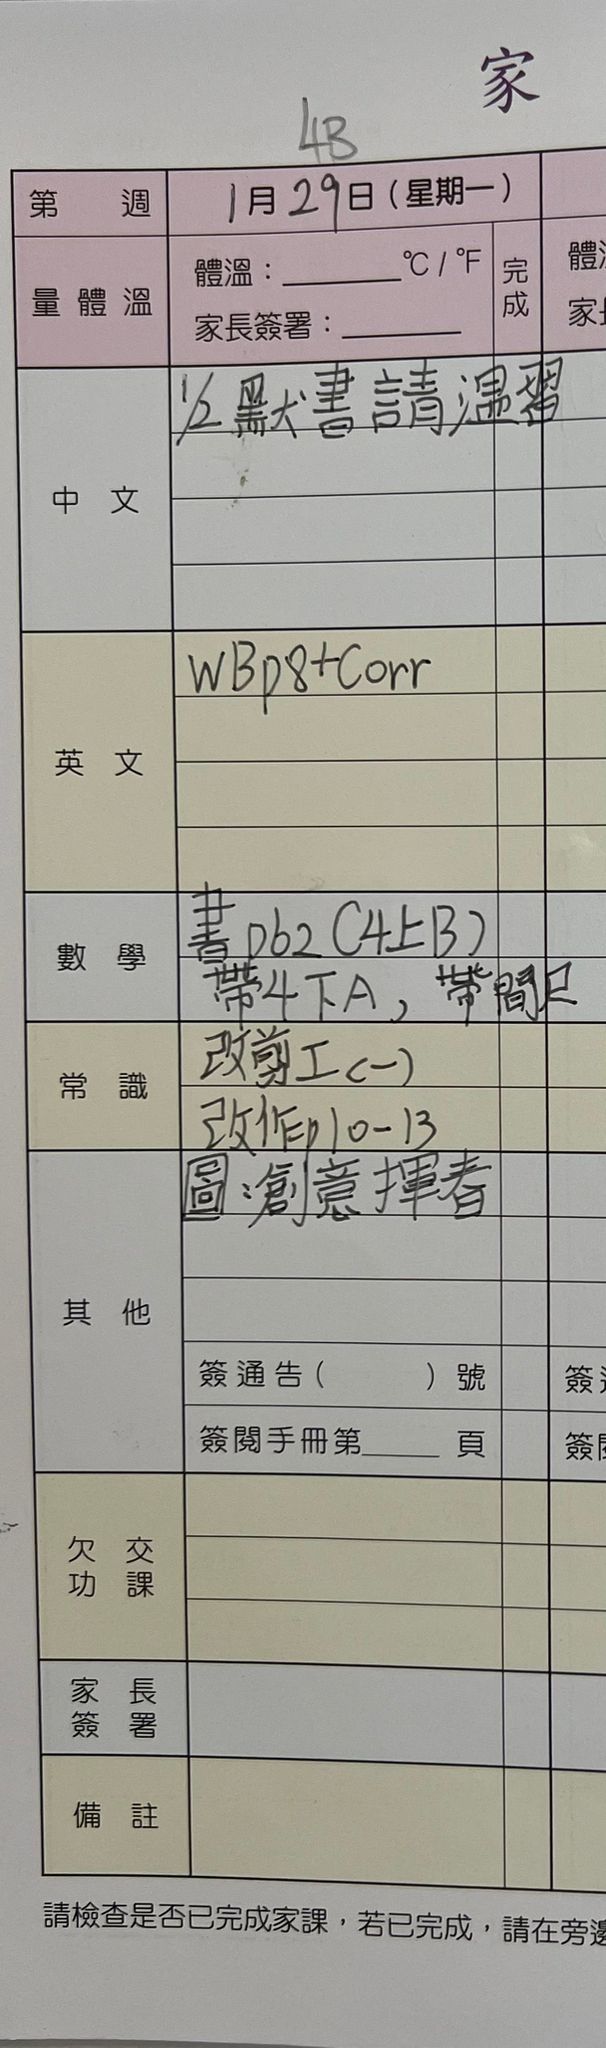 家
4B
第 週
1月29日(星期一)
量體溫
體溫：______°C / °F
家長簽署：______
完成
體
家
中文
1/2 默書請溫習
英文
WBp8+Corr
數學
書p62(4上B)
帶4下A，帶間尺
常識
改剪工(一)
改作p10-13
其他
圖:創意揮春
簽通告( )號
簽
簽閱手冊第____頁
簽
欠交功課
家長簽署
備註
請檢查是否已完成家課，若已完成，請在旁